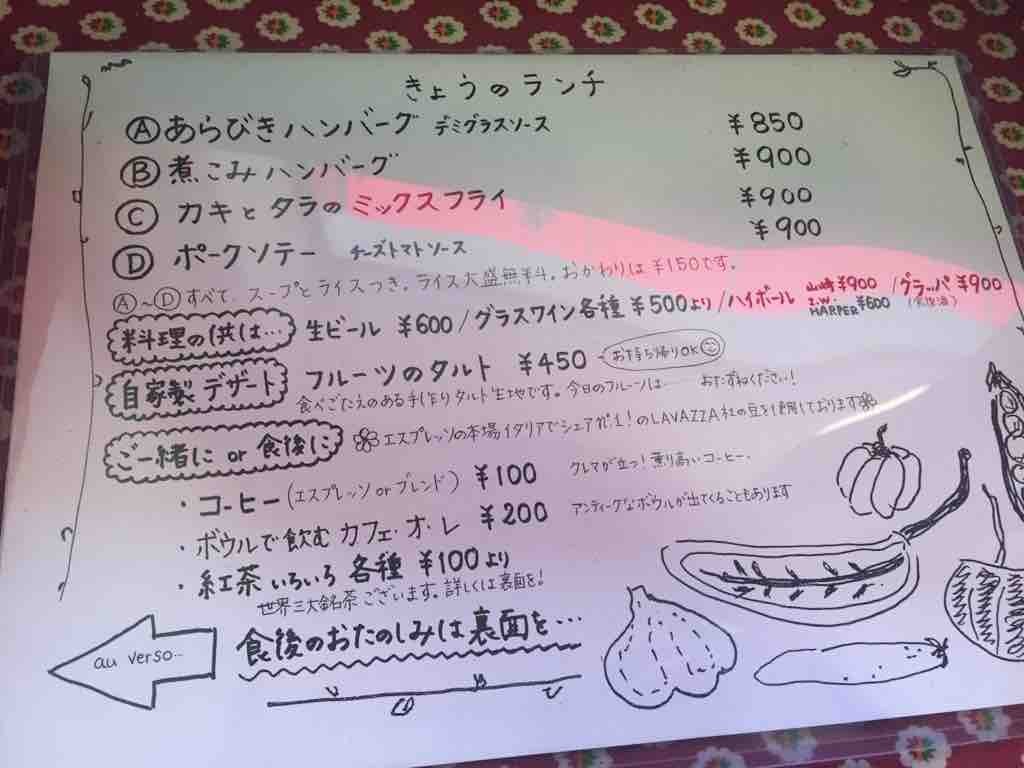 きょうのランチ
Ⓐ あらびきハンバーグ デミグラスソース ¥850
Ⓑ 煮こみハンバーグ ¥900
Ⓒ カキとタラのミックスフライ ¥900
Ⓓ ポークソテー チーズトマトソース ¥900
Ⓐ〜Ⓓ すべて、スープとライスつき。ライス大盛無料。おかわりは¥150です。
料理のお供は… 生ビール ¥600/グラスワイン各種 ¥500より/ハイボール 山崎¥900 I.W. HARPER¥600 /グラッパ ¥900 (食後酒)
自家製 デザート フルーツのタルト ¥450 お持ち帰りOK
食べごたえのある手作りタルト生地です。今日のフルーツは…… おたずねください!
ご一緒に or 食後に エスプレッソの本場イタリアでシェアNo.1!のLAVAZZA社の豆を使用しております
・コーヒー(エスプレッソorブレンド) ¥100 クレマが立つ!薫り高いコーヒー.
・ボウルで飲む カフェ・オ・レ ¥200 アンティークなボウルが出てくることもあります
・紅茶いろいろ 各種 ¥100より
世界三大銘茶ございます。詳しくは裏面を!
食後のおたのしみは裏面を…
au verso…